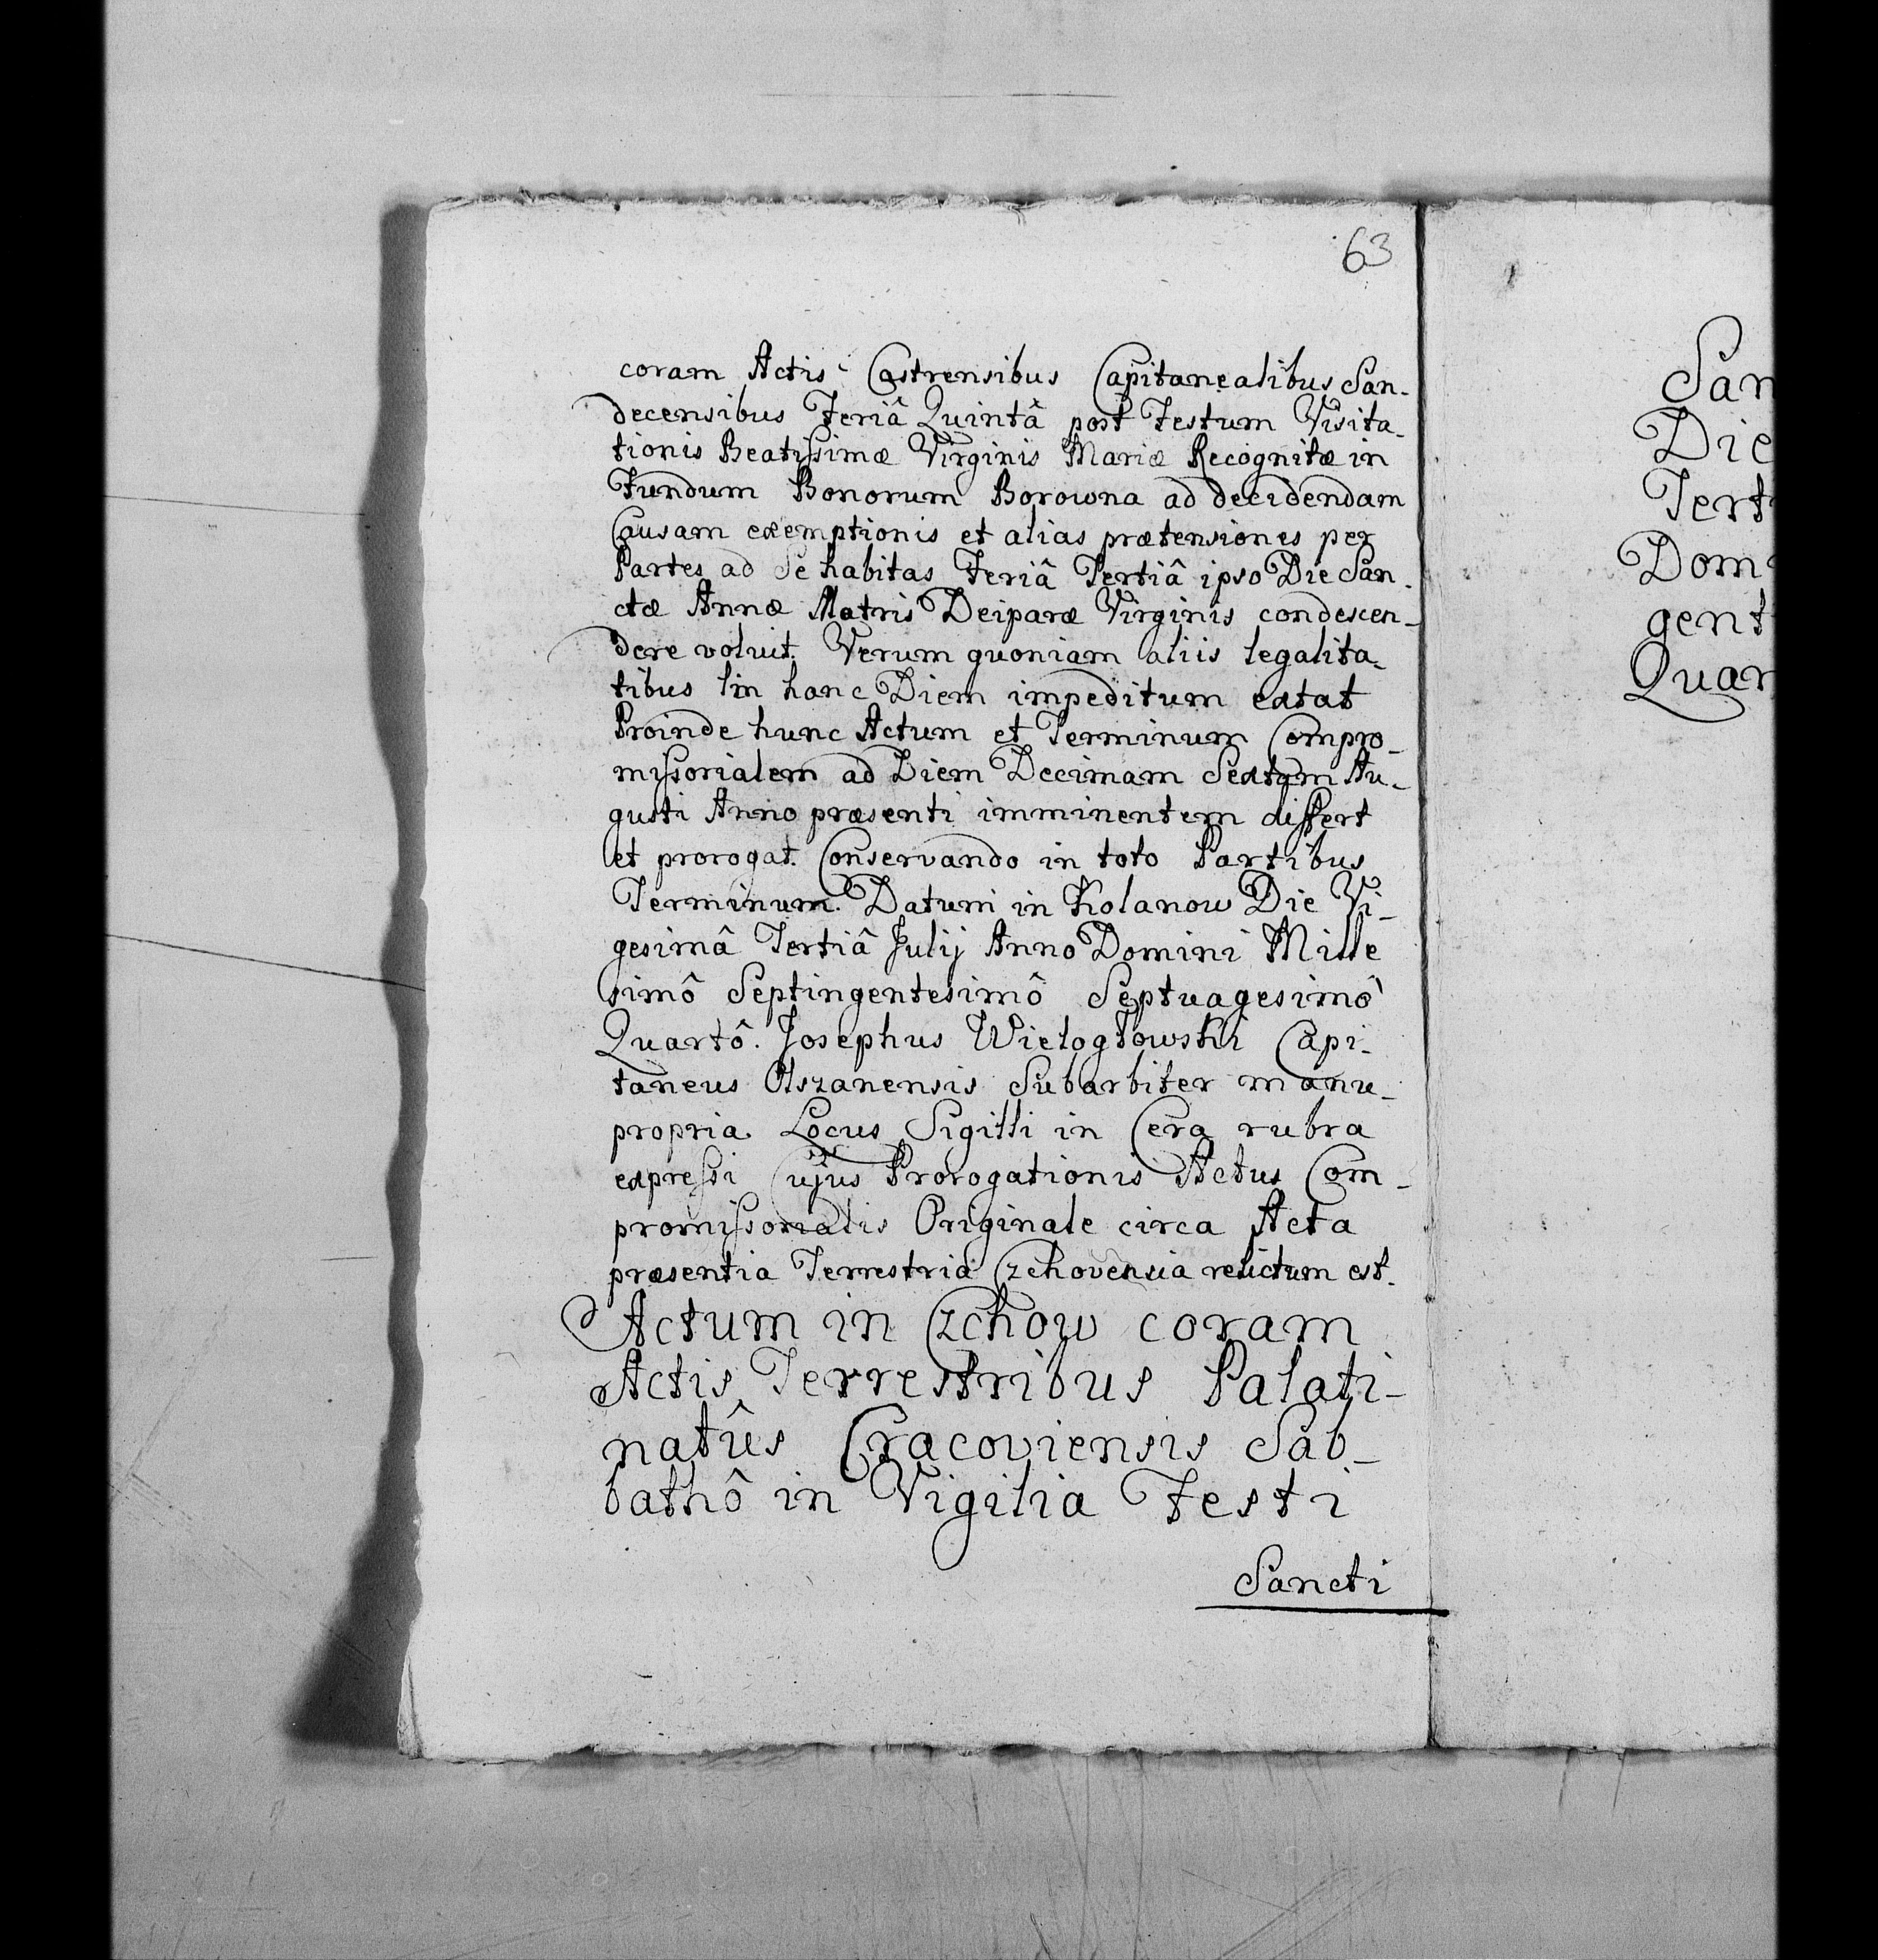 63
coram Actis Castrensibus Capitanealibus San-
decensibus Feriâ Quintâ post Festum Visita-
tionis Beatissimæ Virginis Mariæ Recognitæ in
Fundum Bonorum Borowna ad decidendam
Causam exemptionis et alias prætensiones per
Partes ad Se habitas Feriâ Tertiâ ipso Die San-
ctæ Annæ Matris Deiparæ Virginis condescen-
dere voluit. Verum quoniam aliis legalita-
tibus in hanc Diem impeditum extat
Proinde hunc Actum et Terminum Compro-
missorialem ad Diem Decimam Sextam Au-
gusti Anno præsenti imminentem differt
et prorogat. Conservando in toto Partibus
Terminum. Datum in Kolanow Die Vi-
gesimâ Tertiâ Julij Anno Domini Mille
simô Septingentesimô Septuagesimô
Quartô. Josephus Wielogłowski Capi-
taneus Olszanensis Subarbiter manu-
propria Locus Sigilli in Cera rubra
expressi Cujus Prorogationis Actus Com-
promissorialis Originale circa Acta
præsentia Terrestria Czchovensia relictum est.
Actum in Czchow coram
Actis Terrestribus Palati-
natûs Cracoviensis Sab-
bathô in Vigilia Festi
Sancti
San
Die
Tert
Dom
gent
Quar